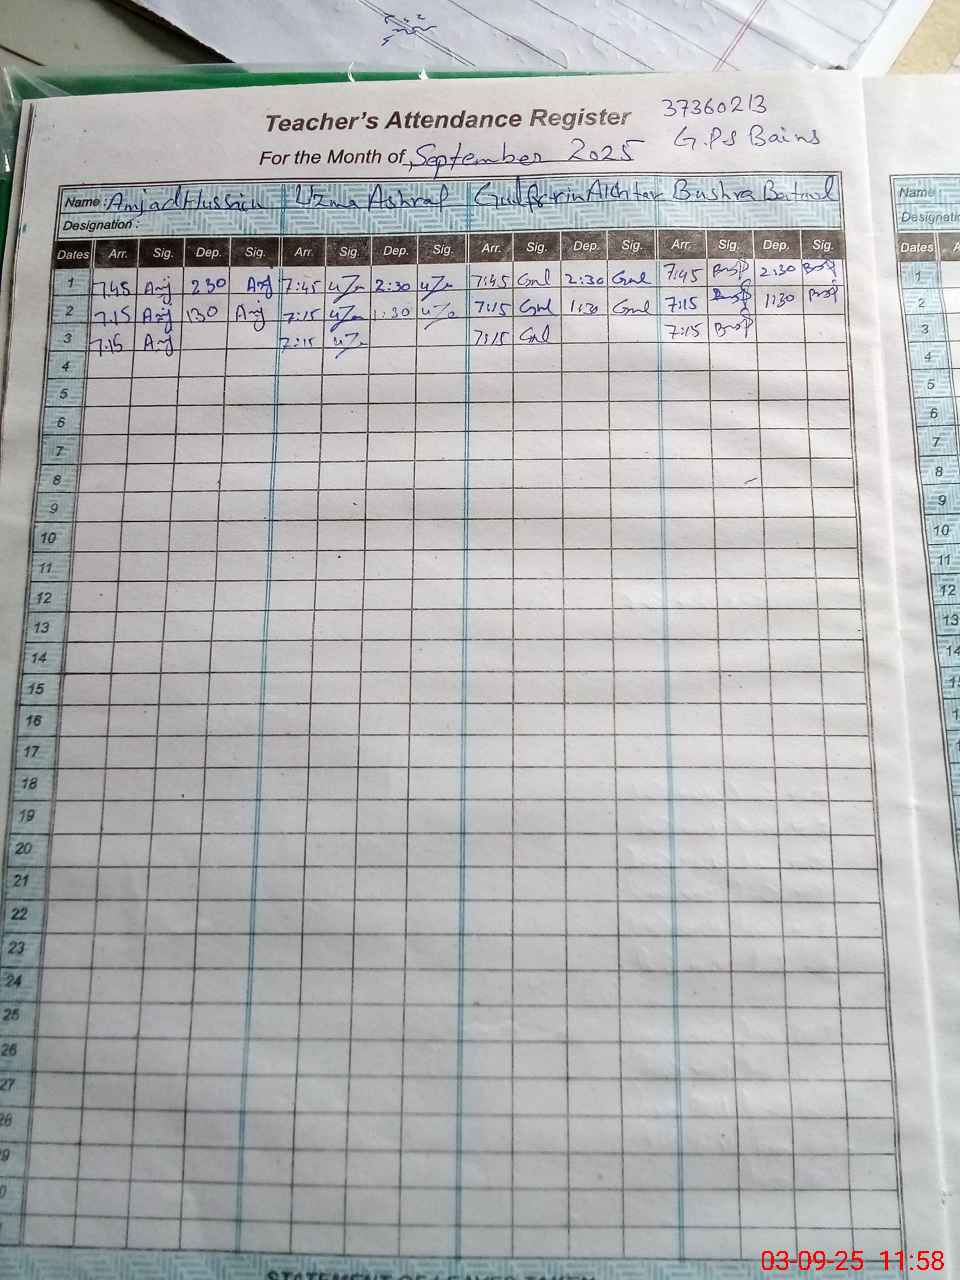 Teacher's Attendance Register 37360213
For the Month of September 2025 G.P.S Bains
Name: Amjad Hussain Uzma Ashraf Gulfarin Akhtar Bushra Batool Name
Designation:
Dates Arr. Sig. Dep. Sig. Arr. Sig. Dep. Sig. Arr. Sig. Dep. Sig. Arr. Sig. Dep. Sig. Dates
1 7:45 Amj 2:30 Amj 7:45 2:30 7:45 Gul 2:30 Gul 7:45 2:30 1
2 7:15 Amj 1:30 Amj 7:15 1:30 7:15 Gul 1:30 Gul 7:15 1:30 2
3 7:15 Amj 7:15 7:15 Gul 7:15 3
4 4
5 5
6 6
7 7
8 8
9 9
10 10
11 11
12 12
13 13
14 14
15
16
17
18
19
20
21
22
23
24
25
26
27
STATEMENT OF LEAVES TAKEN
03-09-25 11:58